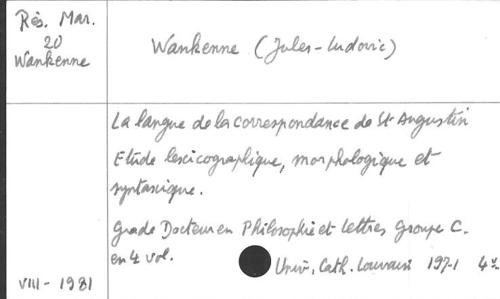 Rés. Mar.
20
Wankenne
Wankenne (Jules-Ludovic)
La langue de la correspondance de St Augustin
Etude lexicographique, morphologique et
syntaxique.
Grade Docteur en Philosophie et lettres Groupe C.
en 4 vol.
Univ. Cath. Louvain 1971 4°
VIII - 1981